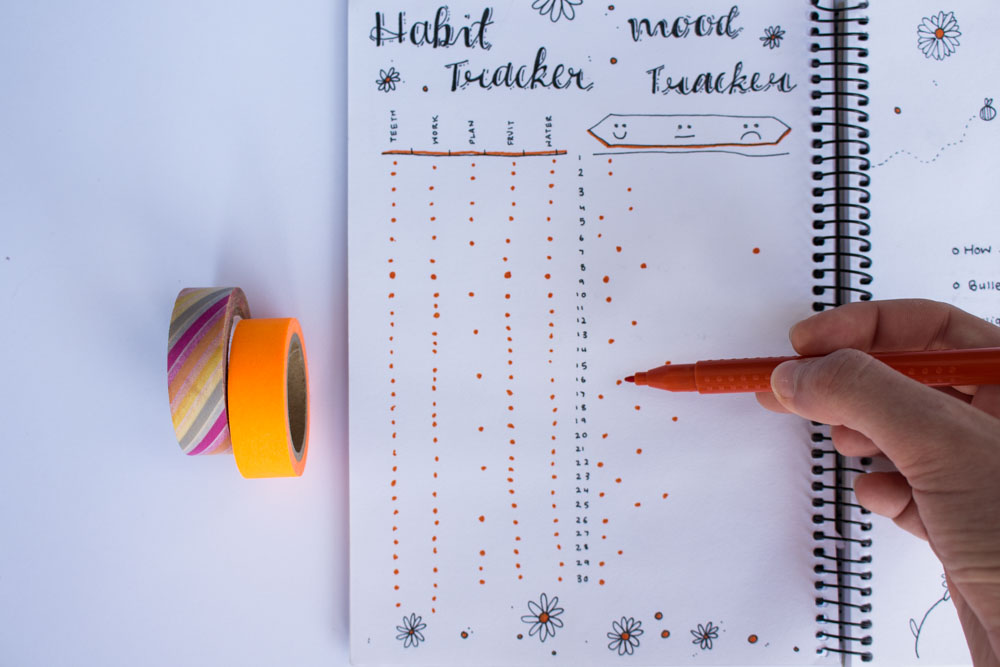 Habit mood
Tracker Tracker
TEETH WORK PLAN FRUIT WATER
1
2
3
4
5
6
7
8
9
10
11
12
13
14
15
16
17
18
19
20
21
22
23
24
25
26
27
28
29
30
How
Bulle